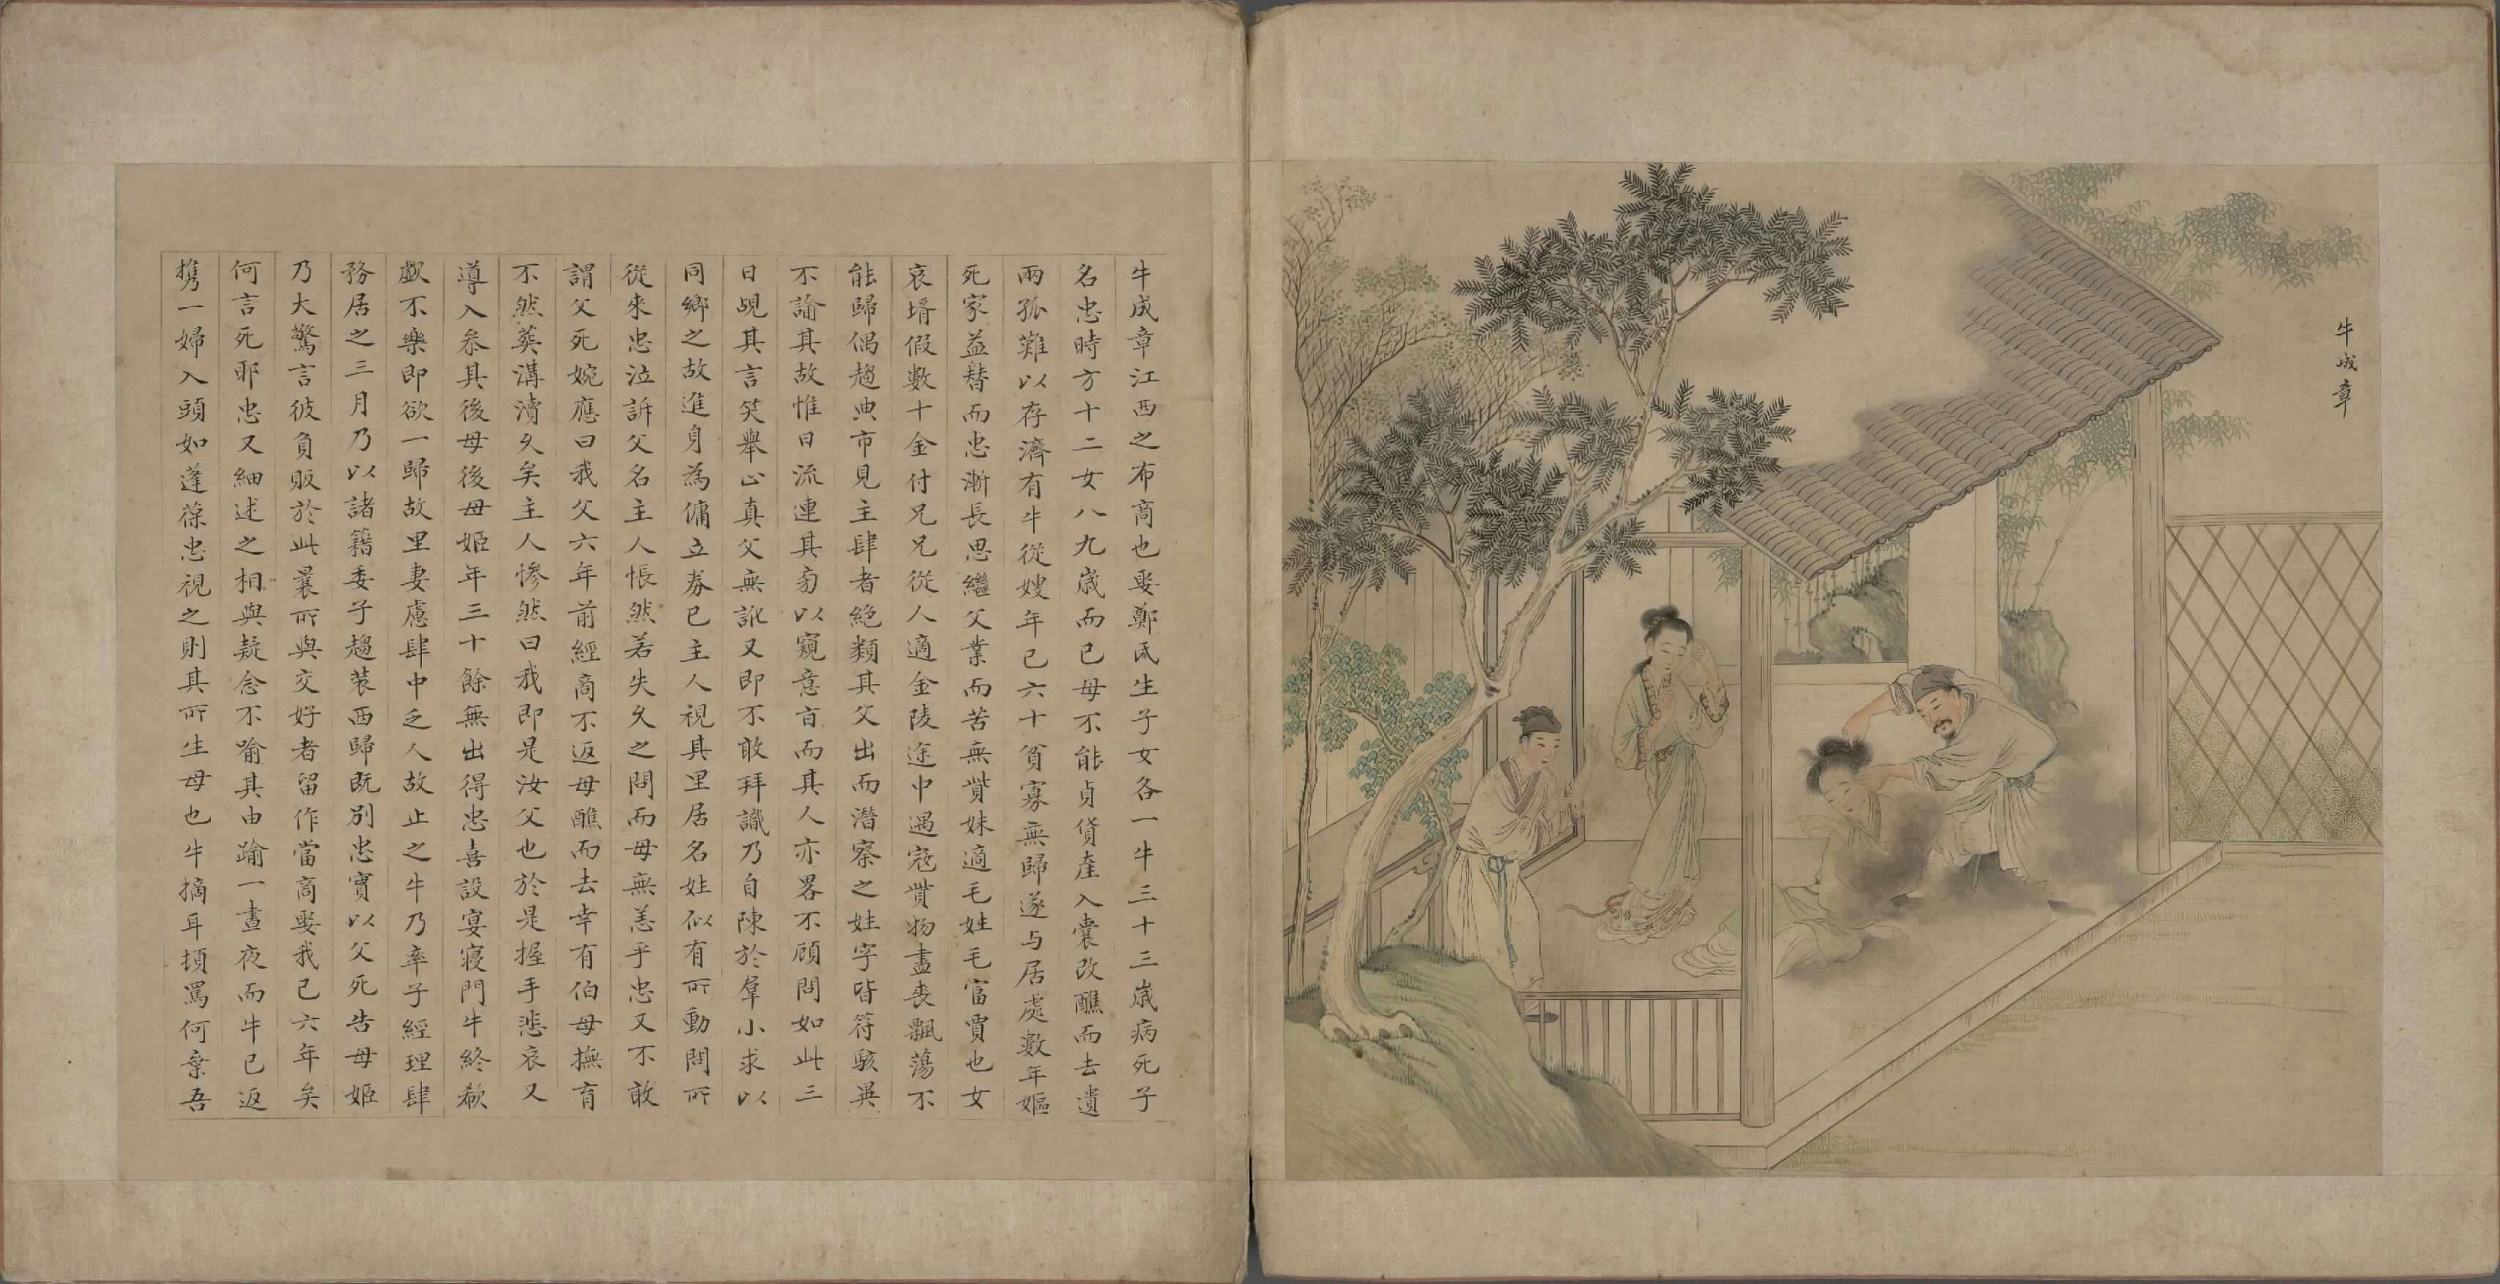 牛成章
牛成章江西之布商也娶鄭氏生子女各一牛三十三歲病死子
名忠時方十二女八九歲而已母不能貞貸產入囊改醮而去遺
兩孤難以存濟有牛從嫂年已六十貧寡無歸遂与居處數年嫗
死家益替而忠漸長思繼父業而苦無貲妹適毛姓毛富賈也女
哀壻假數十金付兄兄從人適金陵途中遇寇貲物盡喪飄蕩不
能歸偶趨典市見主肆者絕類其父出而潛察之姓字皆符駭異
不諭其故惟日流連其旁以窺意旨而其人亦畧不顧問如此三
日覘其言笑舉止真父無訛又即不敢拜識乃自陳於羣小求以
同鄉之故進身為傭立券已主人視其里居名姓似有所動問所
從來忠泣訴父名主人悵然若失久之問而母無恙乎忠又不敢
謂父死婉應曰我父六年前經商不返母醮而去幸有伯母撫育
不然葬溝瀆久矣主人慘然曰我即是汝父也於是握手悲哀又
導入叅其後母後母姬年三十餘無出得忠喜設宴寢門牛終欷
歔不樂即欲一歸故里妻慮肆中乏人故止之牛乃率子經理肆
務居之三月乃以諸籍委子趨裝西歸既別忠實以父死告母姬
乃大驚言彼負販於此曩所與交好者留作當商娶我已六年矣
何言死耶忠又細述之相與疑念不喻其由踰一晝夜而牛已返
携一婦入頭如蓬葆忠視之則其所生母也牛摘耳頓罵何棄吾